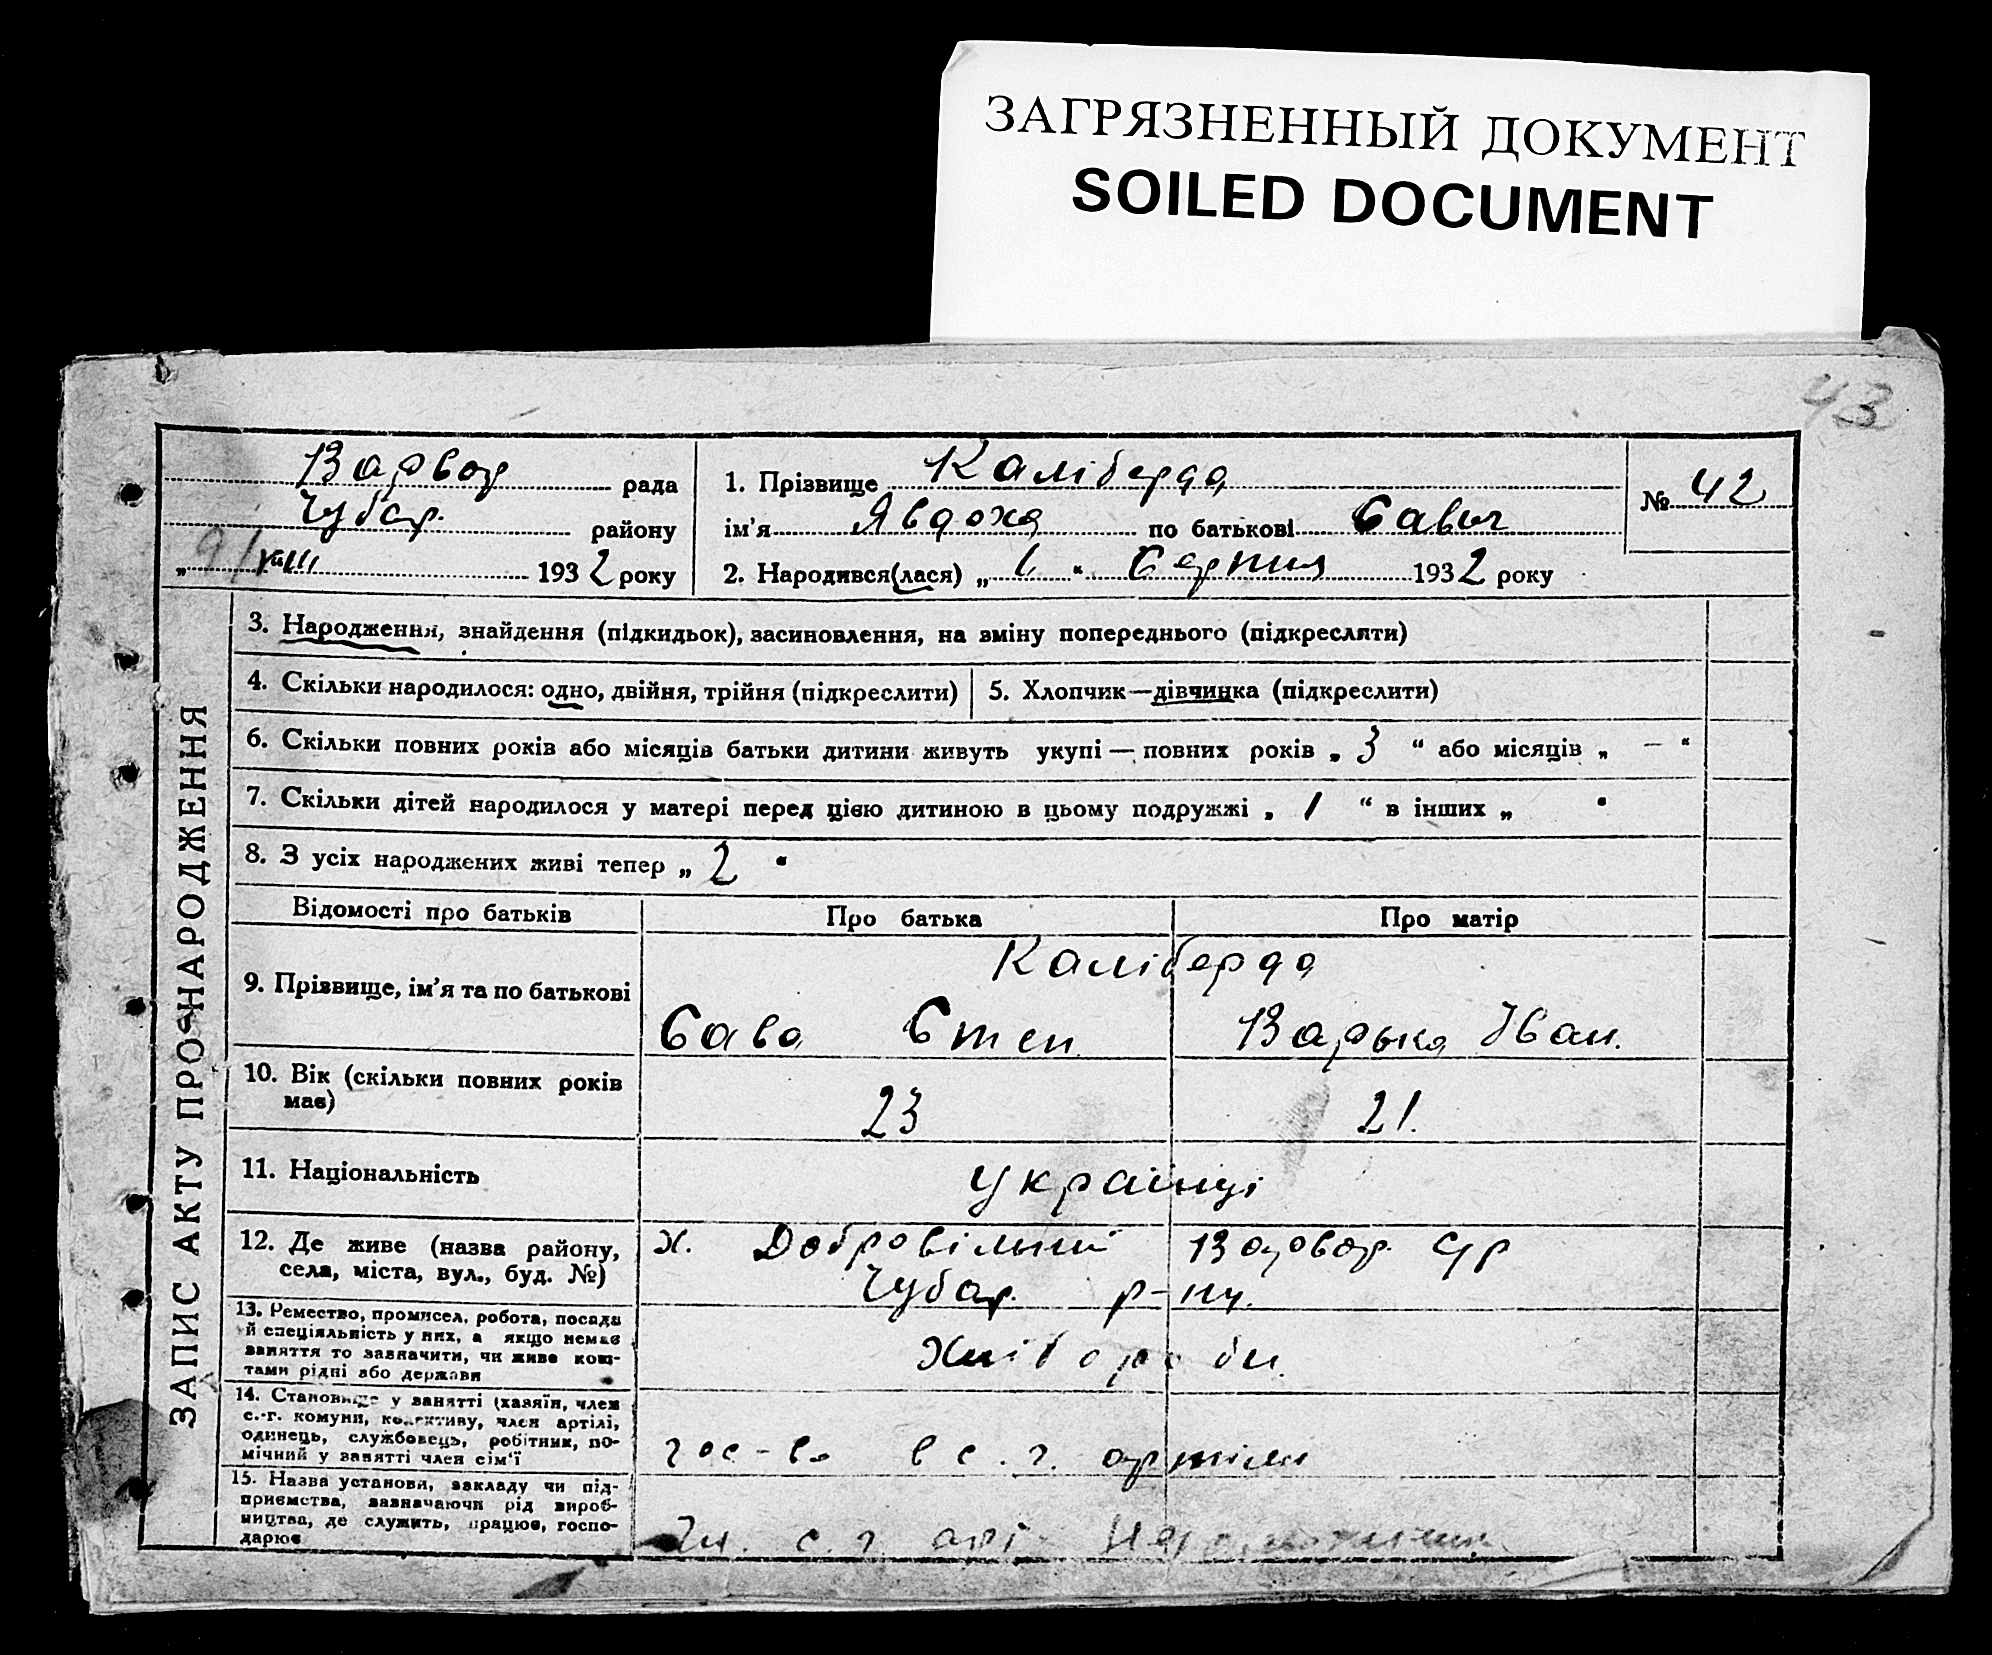 ЗАГРЯЗНЕННЫЙ ДОКУМЕНТ
SOILED DOCUMENT
43
Варвар рада
Чубар. району
„ 9/VIII 1932 року
1. Прізвище Каліберда
ім’я Явдоха по батькові Савич
2. Народився(лася) „ 1 “ Серпня 1932 року
№ 42
ЗАПИС АКТУ ПРО НАРОДЖЕННЯ
3. Народження, знайдення (підкидьок), засиновлення, на зміну попереднього (підкреслити)
4. Скільки народилося: одно, двійня, трійня (підкреслити)
5. Хлопчик—дівчинка (підкреслити)
6. Скільки повних років або місяців батьки дитини живуть укупі — повних років „ 3 “ або місяців „ — “
7. Скільки дітей народилося у матері перед цією дитиною в цьому подружжі „ 1 “ в інших „ “
8. З усіх народжених живі тепер „ 2 “
Відомості про батьків Про батька Про матір
9. Прізвище, ім’я та по батькові
Каліберда
Сава Степ. Варька Іван.
10. Вік (скільки повних років
має)
23 21.
11. Національність
українці
12. Де живе (назва району,
села, міста, вул., буд. №)
х. Добровільний Варвар. с/р
Чубар. р-ну.
13. Ремество, промисел, робота, посада
й спеціяльність у них, а якщо немає
заняття то зазначити, чи живе кош-
тами рідні або держави
Хлібороби.
14. Становище у занятті (хазяїн, член
с.-г. комуни, колективу, член артілі,
одинець, службовець, робітник, по-
мічний у занятті член сім’ї
гос-во в с. г. артілі
15. Назва установи, закладу чи під-
приємства, зазначаючи рід вироб-
ництва, де служить, працює, госпо-
дарює
Чл. с. г. арт